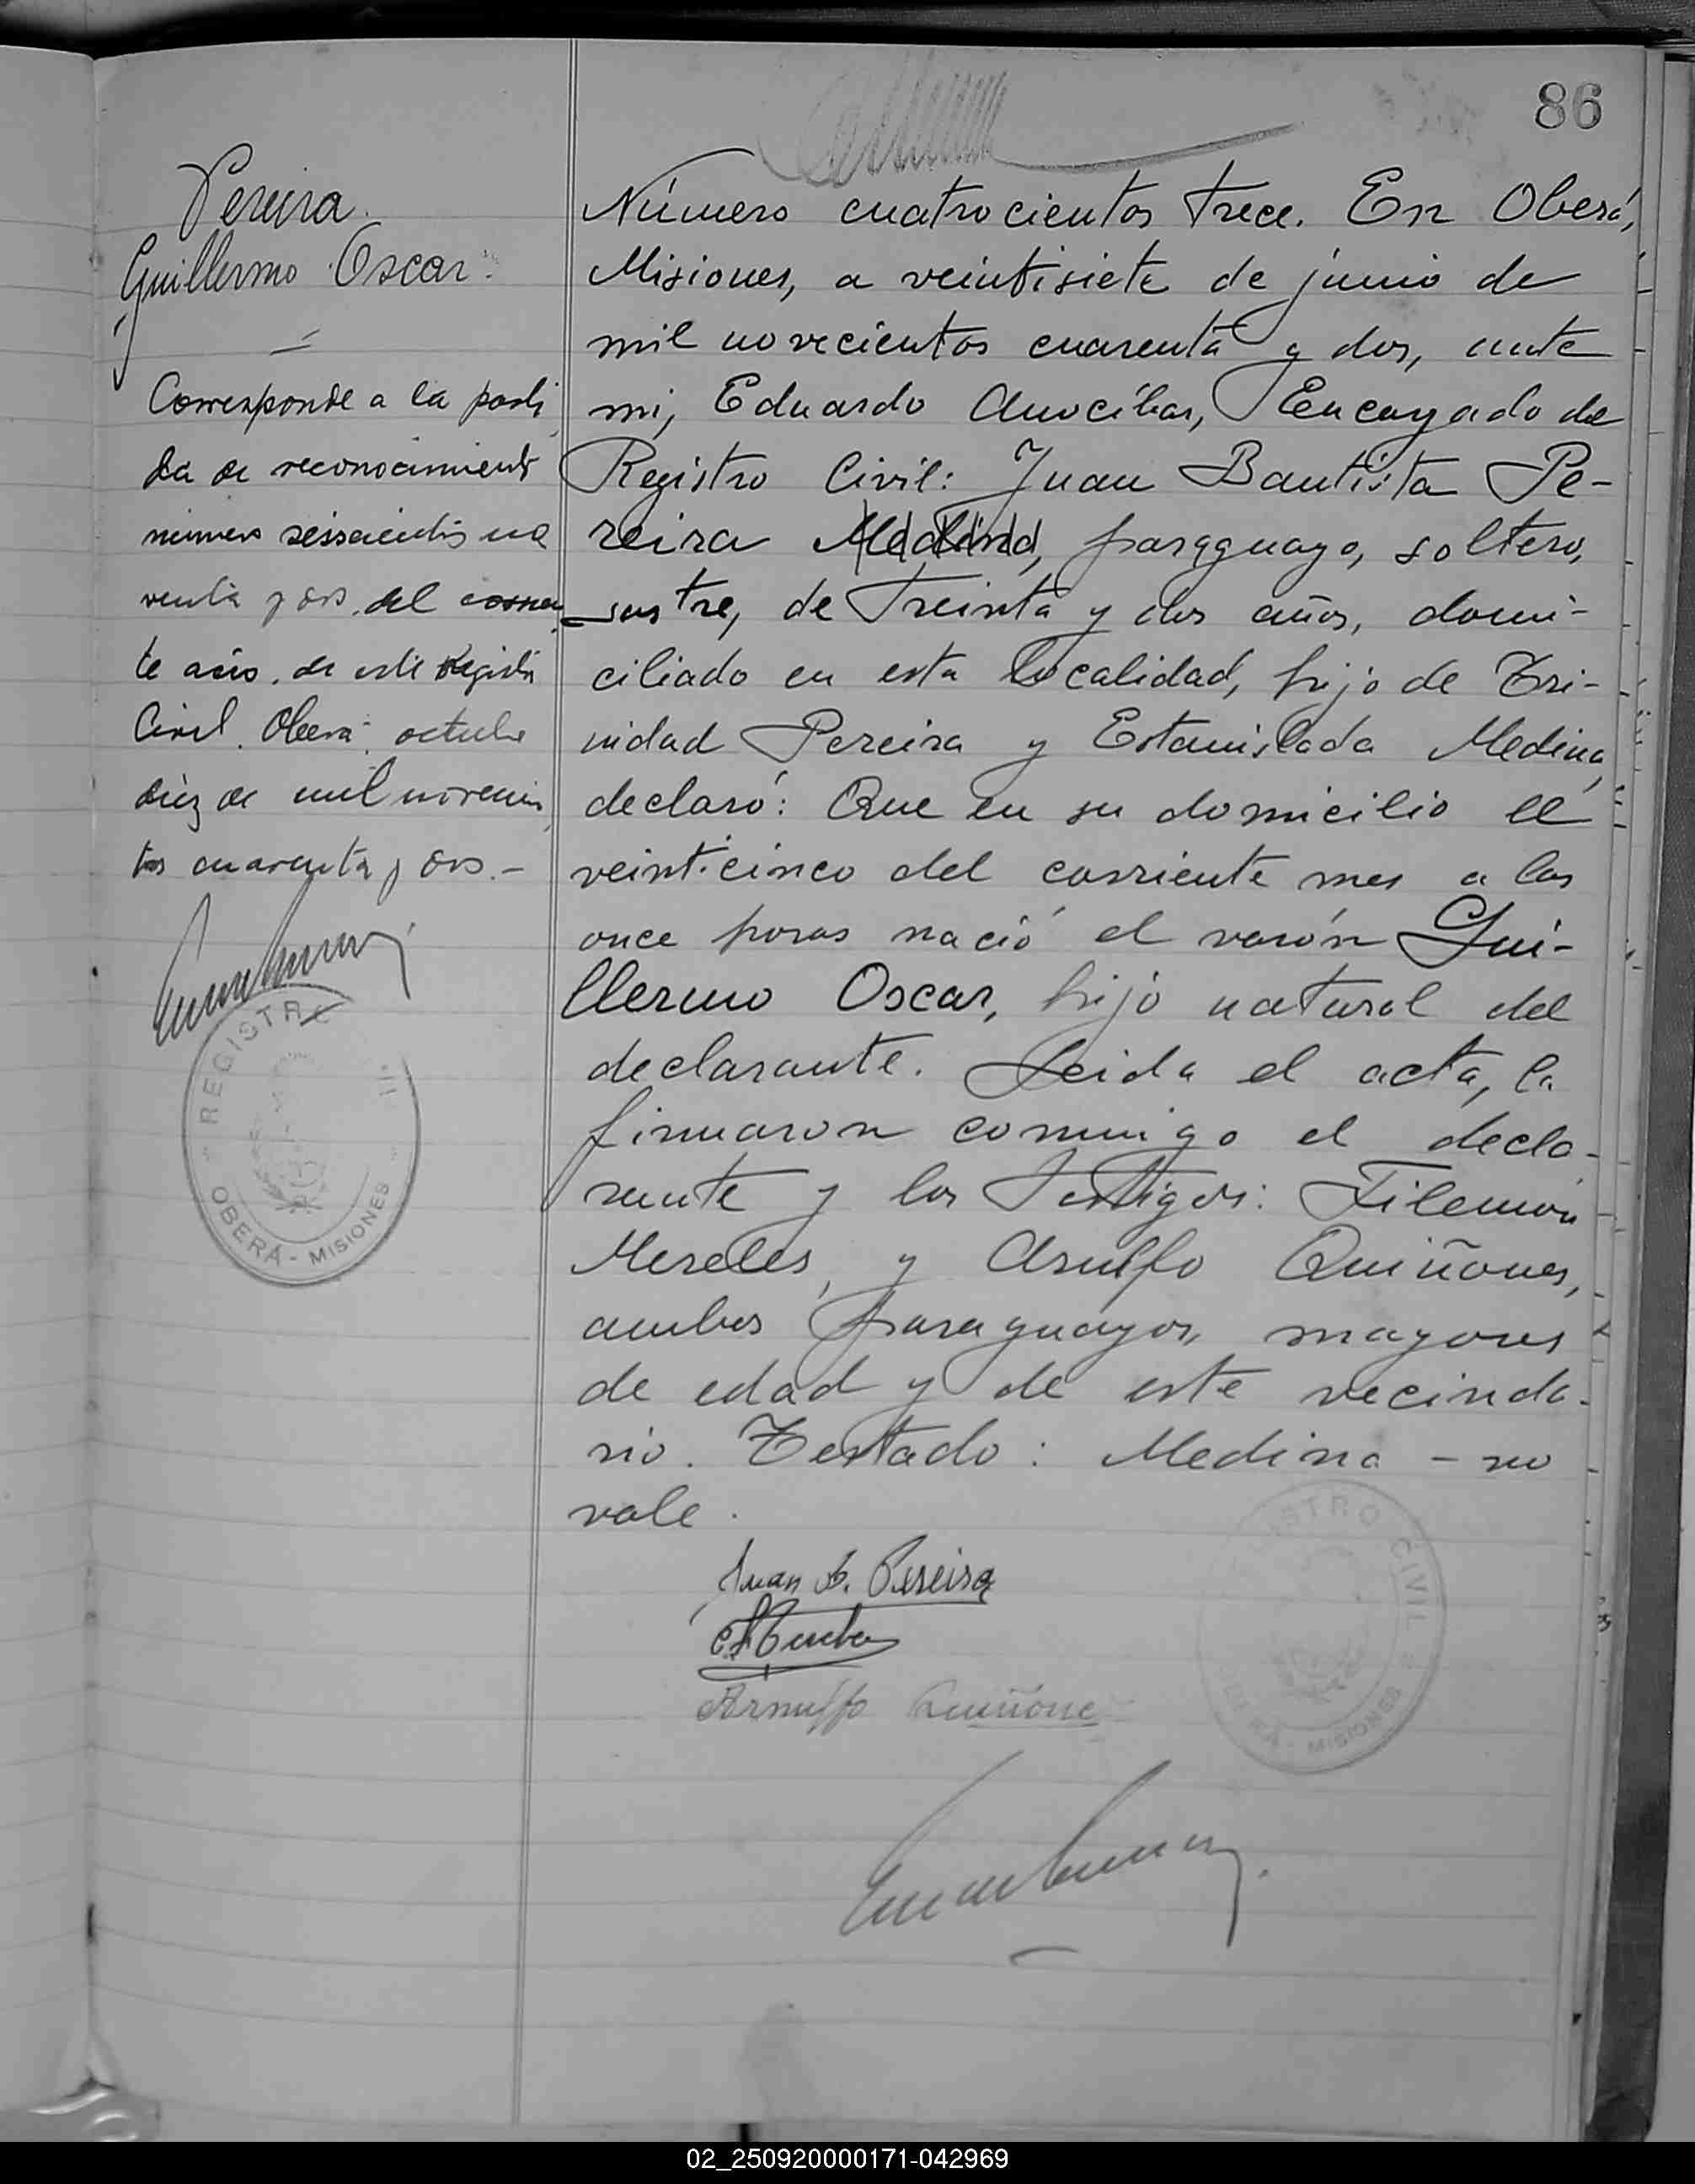 86
Pereira
Guillermo Oscar.
Corresponde a la parti
da de reconocimiento
número seiscientos no
venta y dos del corrien
te año, de este Registro
Civil. Oberá, octubre
diez de mil novecien
tos cuarenta y dos.-
REGISTRO
OBERÁ - MISIONES
Número cuatrocientos trece. En Oberá,
Misiones, a veintisiete de junio de
mil novecientos cuarenta y dos, ante
mi, Eduardo Anocíbar, Encargado del
Registro Civil: Juan Bautista Pe-
reira Medina, paraguayo, soltero,
sastre, de treinta y dos años, domi-
ciliado en esta localidad, hijo de Tri-
nidad Pereira y Estanislada Medina,
declaró: Que en su domicilio el
veinticinco del corriente mes a las
once horas nació el varón Gui-
llermo Oscar, hijo natural del
declarante. Leida el acta, la
firmaron conmigo el decla-
rante y los testigos: Filemón
Mereles, y Arnulfo Quiñones,
ambos paraguayos, mayores
de edad y de este vecinda-
rio. Testado: Medina - no
vale.
Juan B. Pereira
Arnulfo Quiñone
REGISTRO CIVIL
OBERÁ - MISIONES
02_250920000171-042969